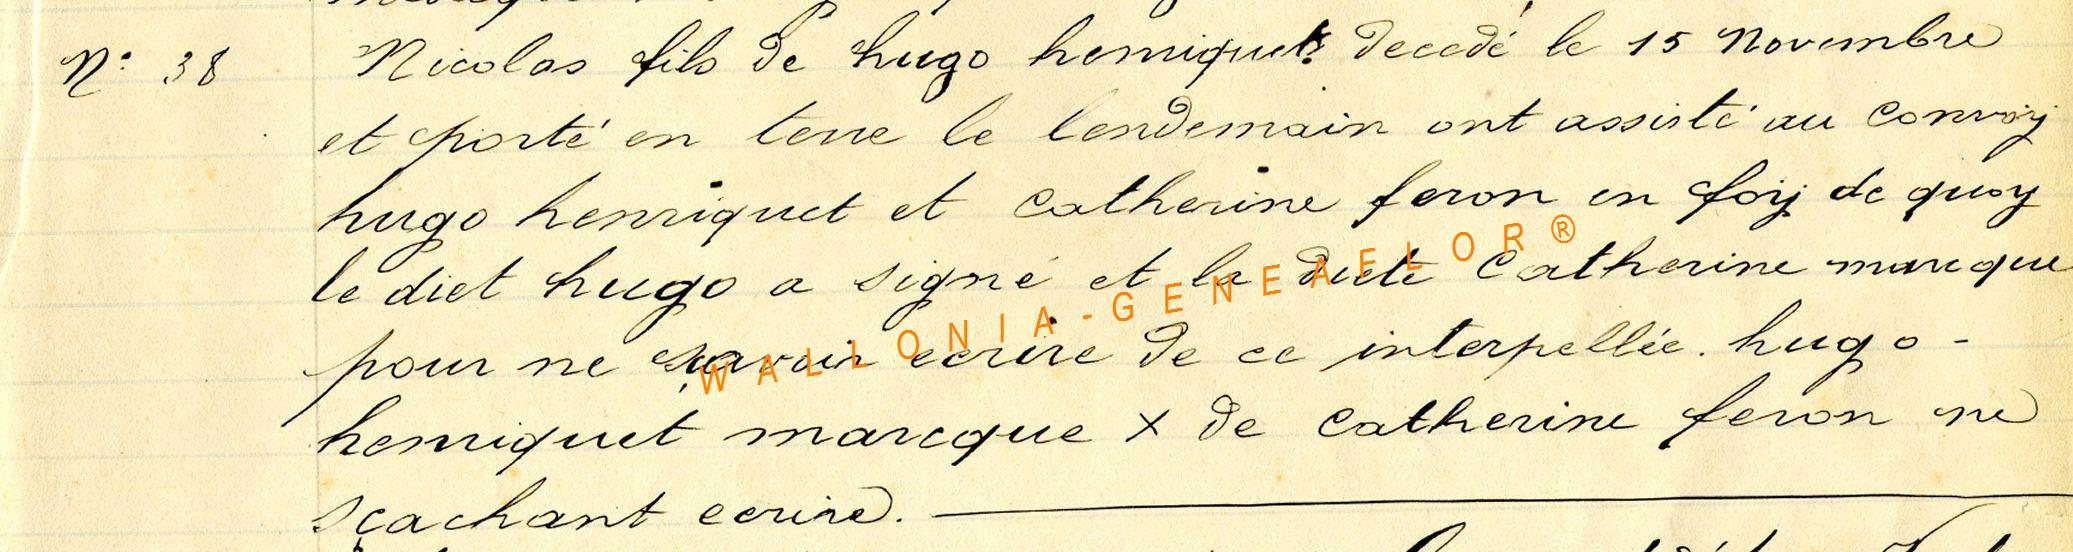 N° 38 Nicolas fils de hugo henriquet decedé le 15 Novembre
et porté en terre le lendemain ont assisté au convoij
hugo henriquet et catherine feron en foij de quoy
le diet hugo a signé et la diete Catherine marcque
pour ne savoir ecrire de ce interpellée. hugo -
henriquet marcque x de catherine feron ne
scachant ecrire.
WALLONIA-GENEAFLOR®